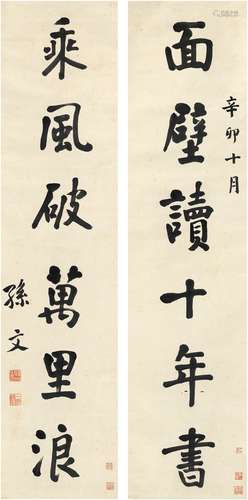 辛卯十月
面壁讀十年書
乘風破萬里浪
孫文